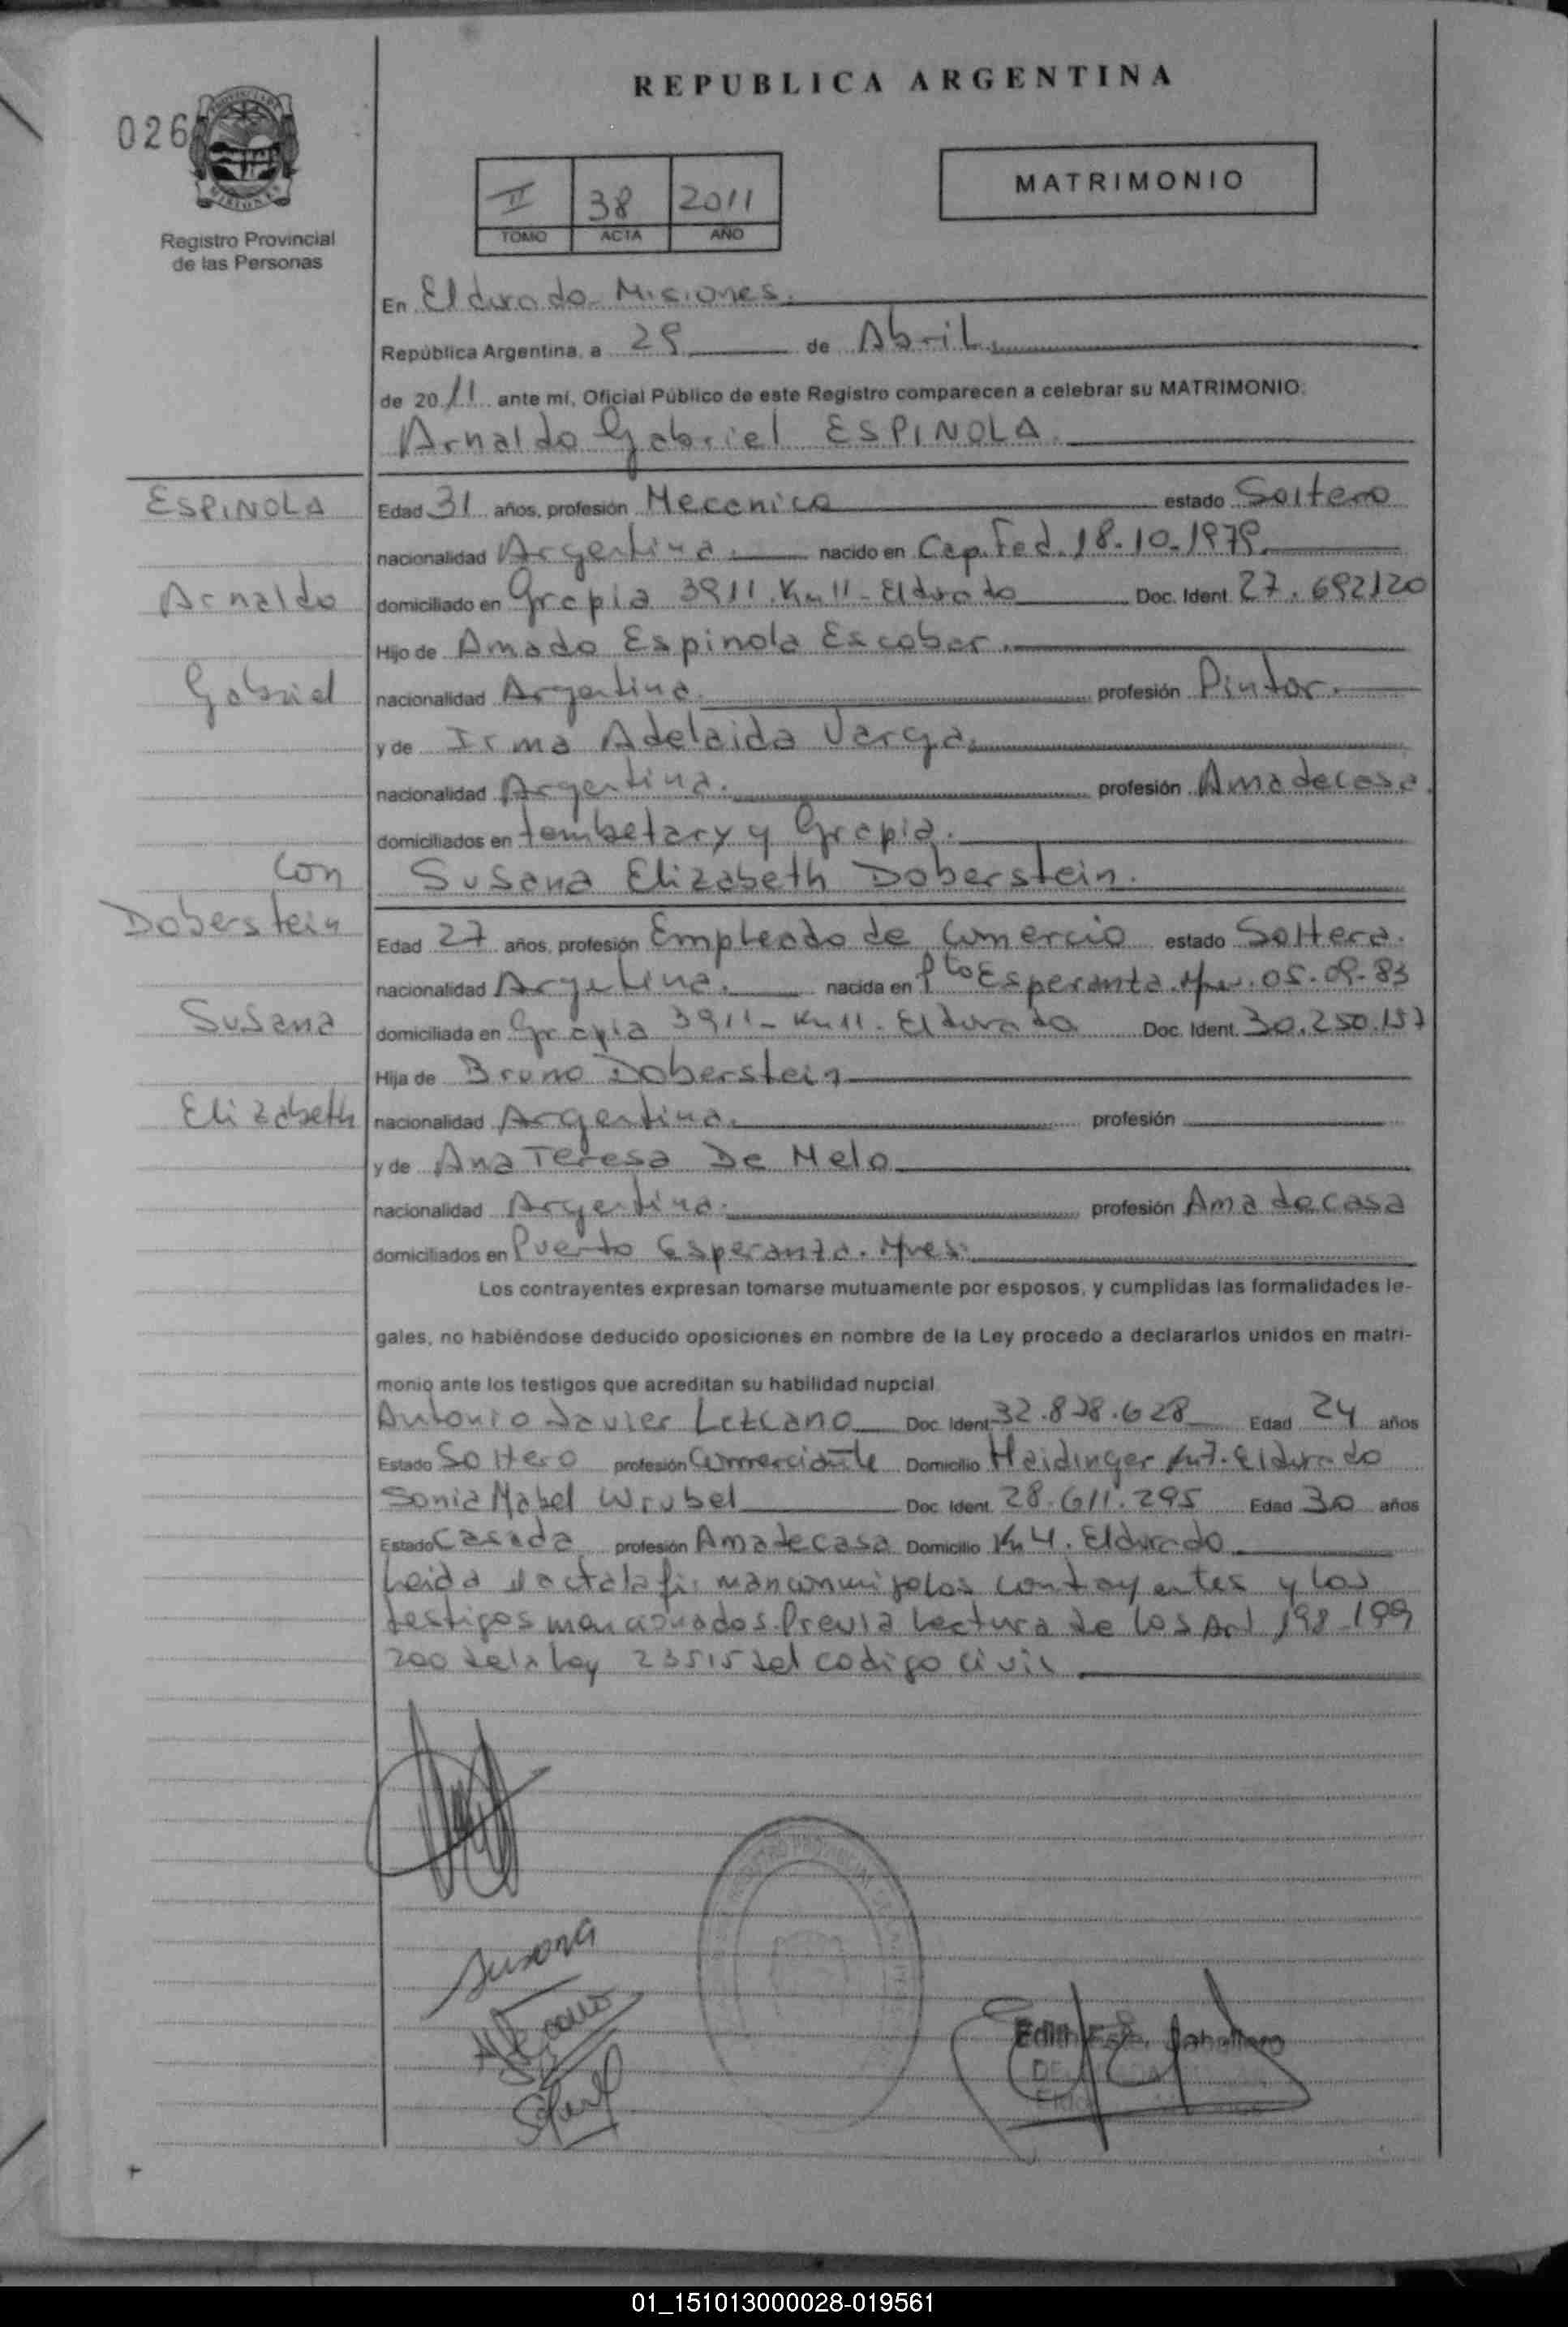 REPUBLICA ARGENTINA
026
Registro Provincial
de las Personas
II 38 2011
TOMO ACTA AÑO
MATRIMONIO
En Eldorado Misiones.
República Argentina, a 29 de Abril.
de 2011 ante mí, Oficial Público de este Registro comparecen a celebrar su MATRIMONIO:
Arnaldo Gabriel ESPINOLA.
ESPINOLA
Edad 31 años, profesión Mecanico estado Soltero
nacionalidad Argentina. nacido en Cap. Fed. 18-10-1979.
Arnaldo
domiciliado en Grapia 3911. Km 11 - Eldorado Doc. Ident. 27.692120
Hijo de Amado Espinola Escobar.
Gabriel
nacionalidad Argentina. profesión Pintor.
y de Irma Adelaida Varga.
nacionalidad Argentina. profesión Ama de casa.
domiciliados en tambetary y Grapia.
Con
Susana Elizabeth Doberstein.
Doberstein
Edad 27 años, profesión Empleado de Comercio estado Soltera.
nacionalidad Argentina. nacida en Pto Esperanza. 05-09-83
Susana
domiciliada en Grapia 3911 - Km 11. Eldorado Doc. Ident. 30.250.157
Hija de Bruno Doberstein
Elizabeth
nacionalidad Argentina. profesión
y de Ana Teresa De Melo
nacionalidad Argentina. profesión Ama de casa
domiciliados en Puerto Esperanza. Mnes.
Los contrayentes expresan tomarse mutuamente por esposos, y cumplidas las formalidades le-
gales, no habiéndose deducido oposiciones en nombre de la Ley procedo a declararlos unidos en matri-
monio ante los testigos que acreditan su habilidad nupcial
Antonio Javier Lezcano Doc. Ident. 32.878.628 Edad 24 años
Estado Soltero profesión Comerciante Domicilio Haidinger Km 7. Eldorado
Sonia Mabel Wrubel Doc. Ident. 28.611.295 Edad 30 años
Estado Casada profesión Ama de casa Domicilio Km 4. Eldorado
Leida el acta la los contrayentes y los
testigos mencionados. Previa lectura de los Art 198-199
200 de la Ley 23515 del codigo civil
Susana
Edith
01_151013000028-019561